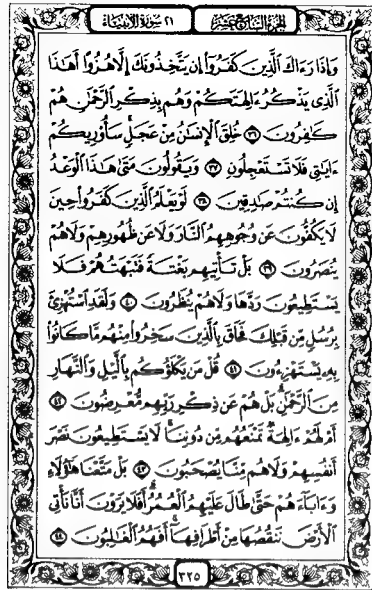 الجُزْءُ السَّابِعَ عَشَرَ ٢١ سُورَةُ الأَنْبِيَاءِ
وَإِذَا رَءَاكَ ٱلَّذِينَ كَفَرُوٓا۟ إِن يَتَّخِذُونَكَ إِلَّا هُزُوًا أَهَٰذَا
ٱلَّذِى يَذْكُرُ ءَالِهَتَكُمْ وَهُم بِذِكْرِ ٱلرَّحْمَٰنِ هُمْ
كَٰفِرُونَ ٣٦ خُلِقَ ٱلْإِنسَٰنُ مِنْ عَجَلٍ سَأُو۟رِيكُمْ
ءَايَٰتِى فَلَا تَسْتَعْجِلُونِ ٣٧ وَيَقُولُونَ مَتَىٰ هَٰذَا ٱلْوَعْدُ
إِن كُنتُمْ صَٰدِقِينَ ٣٨ لَوْ يَعْلَمُ ٱلَّذِينَ كَفَرُوا۟ حِينَ
لَا يَكُفُّونَ عَن وُجُوهِهِمُ ٱلنَّارَ وَلَا عَن ظُهُورِهِمْ وَلَا هُمْ
يُنصَرُونَ ٣٩ بَلْ تَأْتِيهِم بَغْتَةً فَتَبْهَتُهُمْ فَلَا
يَسْتَطِيعُونَ رَدَّهَا وَلَا هُمْ يُنظَرُونَ ٤٠ وَلَقَدِ ٱسْتُهْزِئَ
بِرُسُلٍ مِّن قَبْلِكَ فَحَاقَ بِٱلَّذِينَ سَخِرُوا۟ مِنْهُم مَّا كَانُوا۟
بِهِۦ يَسْتَهْزِءُونَ ٤١ قُلْ مَن يَكْلَؤُكُم بِٱلَّيْلِ وَٱلنَّهَارِ
مِنَ ٱلرَّحْمَٰنِ بَلْ هُمْ عَن ذِكْرِ رَبِّهِم مُّعْرِضُونَ ٤٢
أَمْ لَهُمْ ءَالِهَةٌ تَمْنَعُهُم مِّن دُونِنَا لَا يَسْتَطِيعُونَ نَصْرَ
أَنفُسِهِمْ وَلَا هُم مِّنَّا يُصْحَبُونَ ٤٣ بَلْ مَتَّعْنَا هَٰٓؤُلَآءِ
وَءَابَآءَهُمْ حَتَّىٰ طَالَ عَلَيْهِمُ ٱلْعُمُرُ أَفَلَا يَرَوْنَ أَنَّا نَأْتِى
ٱلْأَرْضَ نَنقُصُهَا مِنْ أَطْرَافِهَآ أَفَهُمُ ٱلْغَٰلِبُونَ ٤٤
٣٢٥